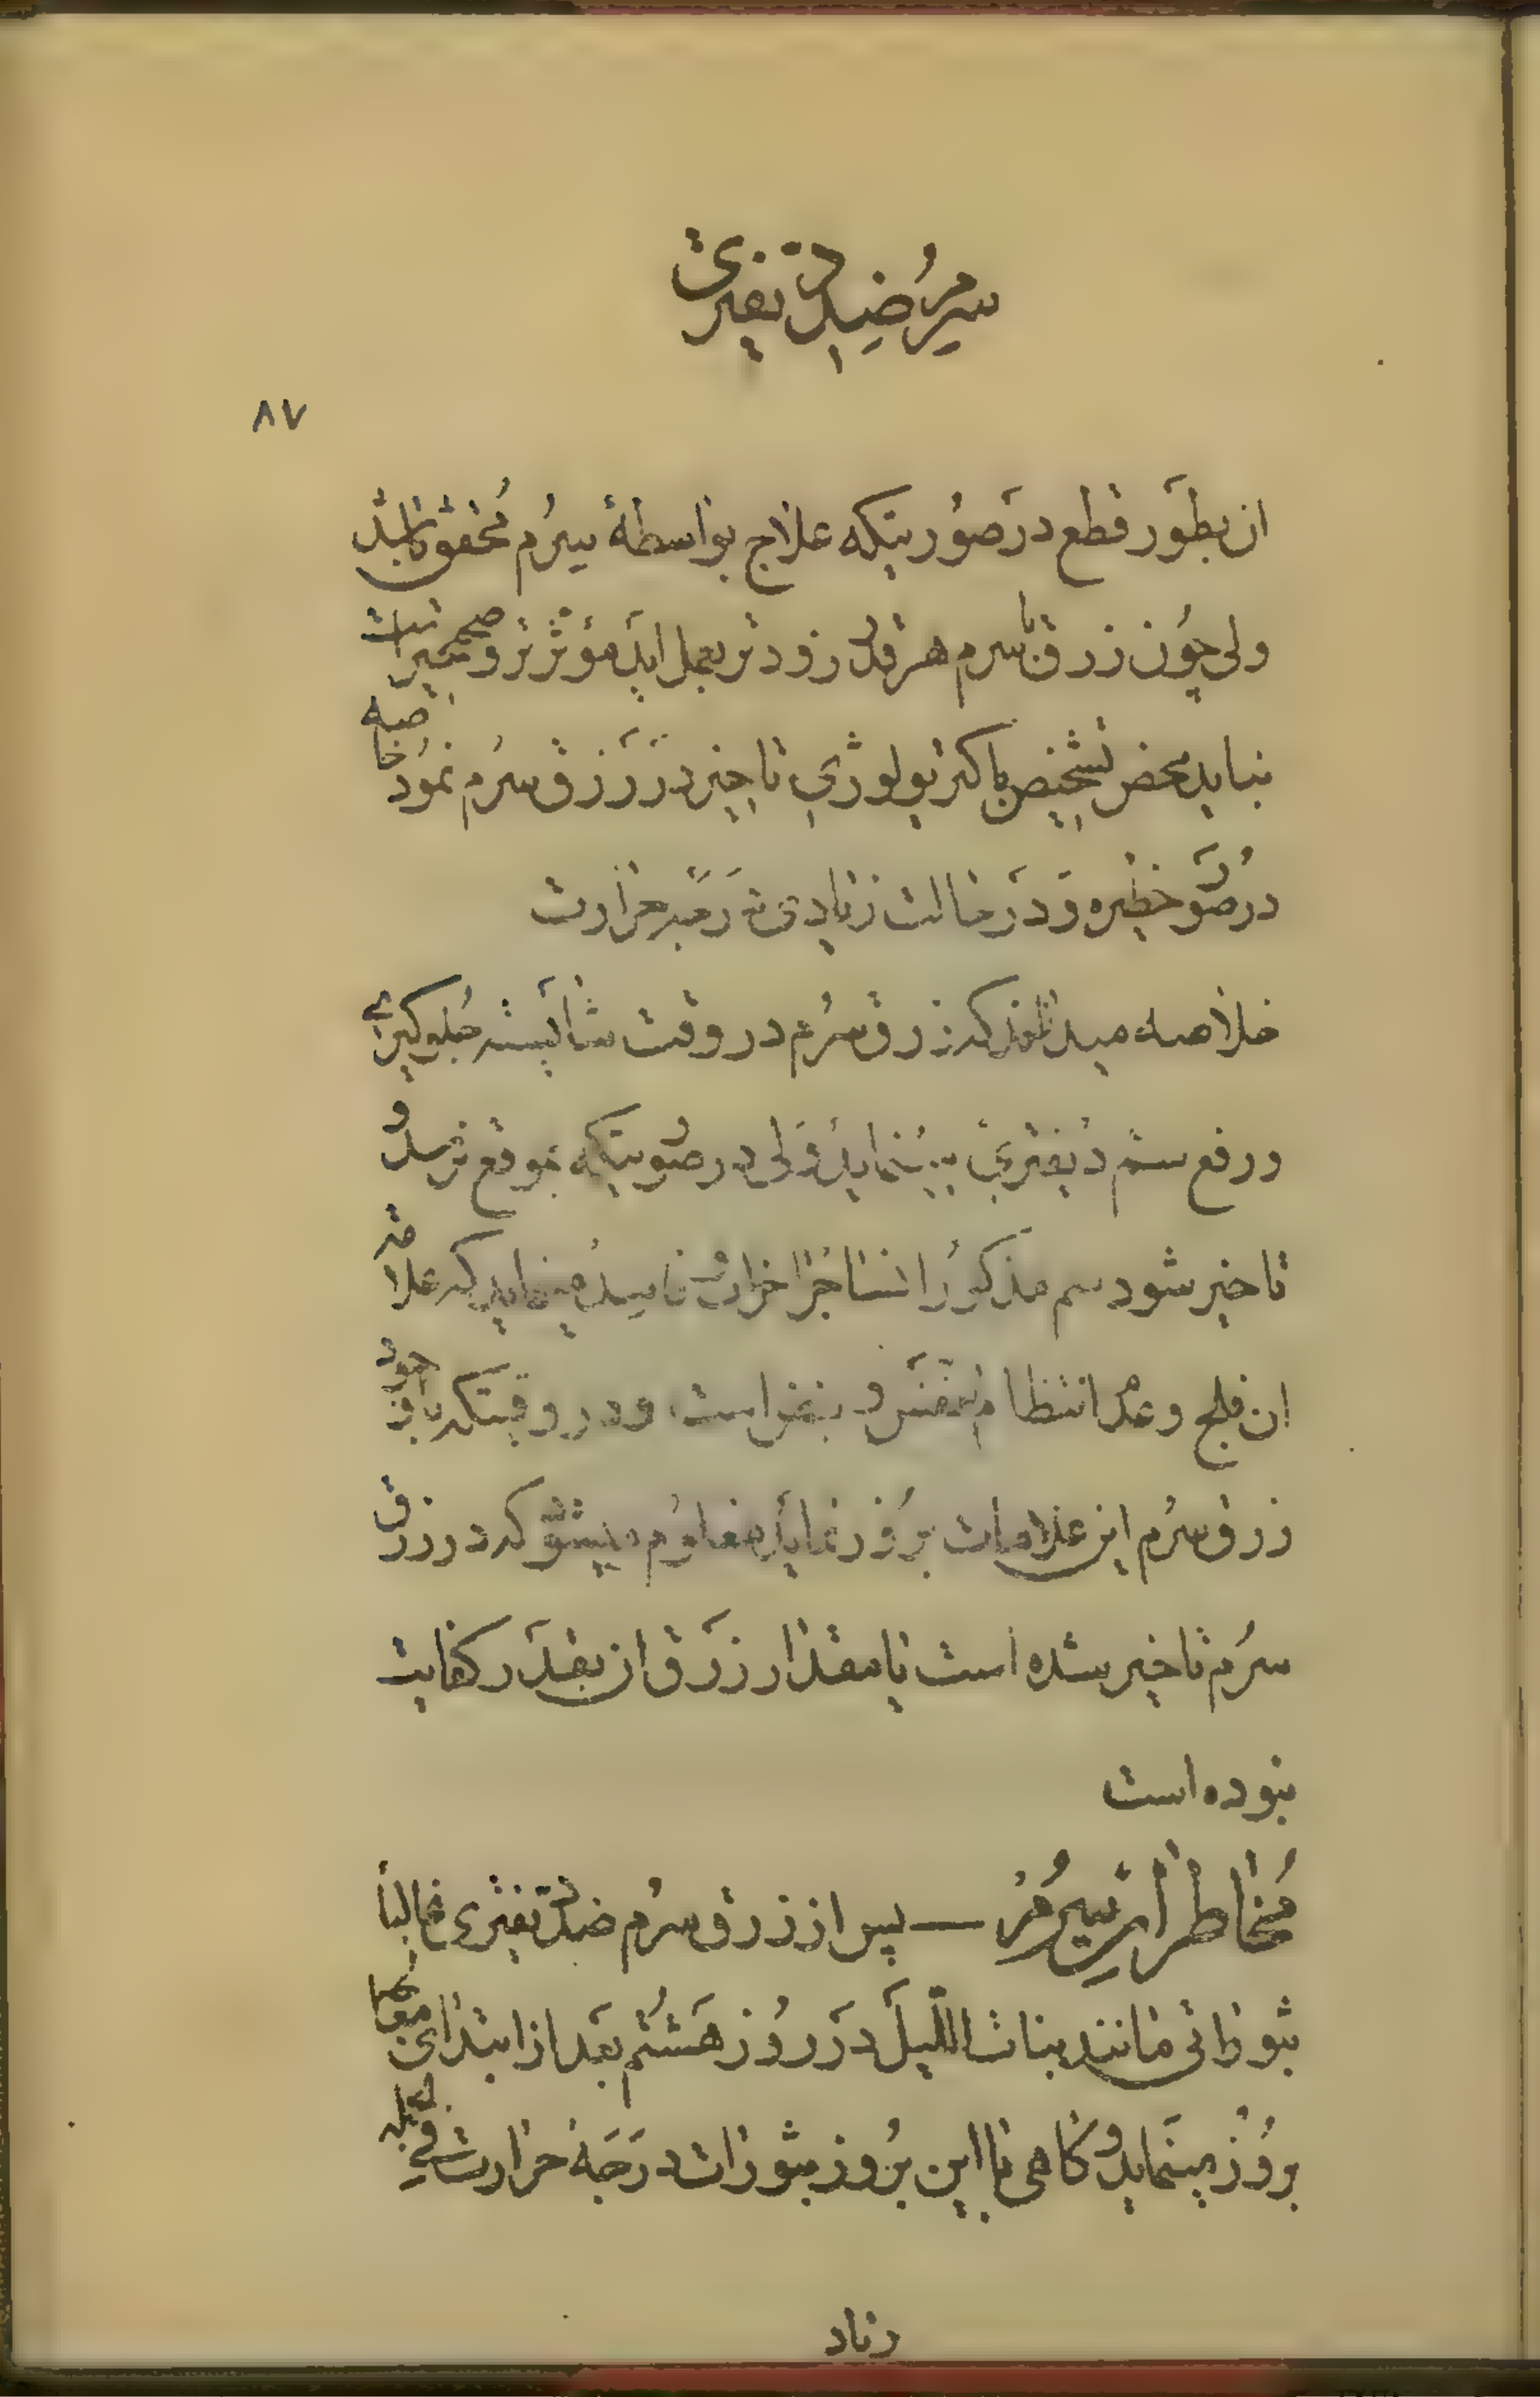 سیرم ضد دیفتری
۸۷
ان بطور قطع در صورتیکه علاج بواسطهٔ سیرم محقق باشد
ولی چون زرق سرم هر قدر زودتر بعمل اید مؤثرتر و صحیح تر است
نباید محض تشخیص باکتریولوژی تاخیر در زرق سرم نمود خاصه
در صور خطیره و در حالت زیادی درجه حرارت
خلاصه میدانند که زرق سرم در وقت شایسته جلوگیری
و رفع سم دیفتری مینماید ولی در صورتیکه بموقع نرسد و
تاخیر شود سم مذکور انساجرا خراب فاسد مینماید که علامت
ان فلج و عدم انتظام تنفس و نبض است و در وقتیکه با وجود
زرق سرم این علامات بروز نماید معلوم میشود که در زرق
سرم تاخیر شده است یا مقدار زرق ان بقدر کفایت
نبوده است
مخاطرات سیرم — پس از زرق سرم ضد دیفتری غالباً
بثوراتی مانند بنات اللیل در روز هشتم بعد از ابتدای معالجه
بروز مینماید و کاهی با این بروز بثورات درجهٔ حرارت
زیاد